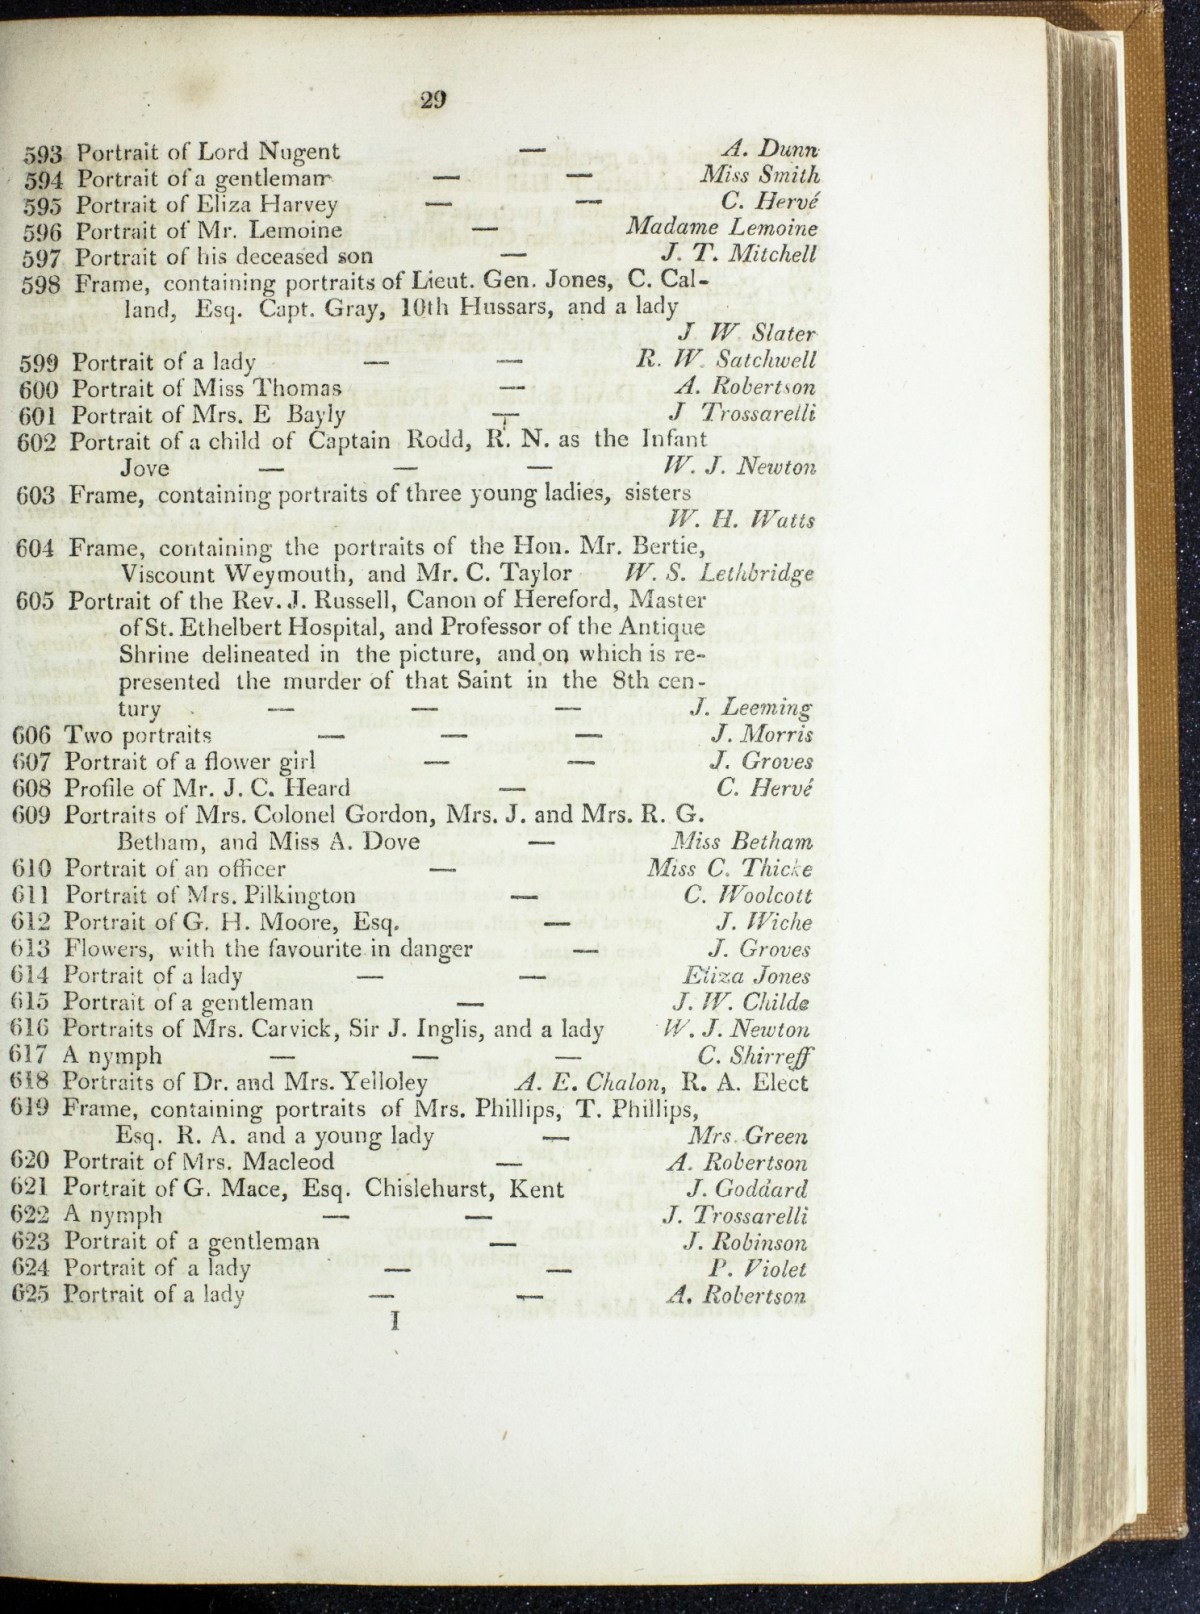 29
593 Portrait of Lord Nugent — A. Dunn
594 Portrait of a gentleman — — Miss Smith
595 Portrait of Eliza Harvey — — C. Hervé
596 Portrait of Mr. Lemoine — Madame Lemoine
597 Portrait of his deceased son — J. T. Mitchell
598 Frame, containing portraits of Lieut. Gen. Jones, C. Cal-
land, Esq. Capt. Gray, 10th Hussars, and a lady
J W Slater
599 Portrait of a lady — — R. W. Satchwell
600 Portrait of Miss Thomas — A. Robertson
601 Portrait of Mrs. E Bayly — J Trossarelli
602 Portrait of a child of Captain Rodd, R. N. as the Infant
Jove — — — W. J. Newton
603 Frame, containing portraits of three young ladies, sisters
W. H. Watts
604 Frame, containing the portraits of the Hon. Mr. Bertie,
Viscount Weymouth, and Mr. C. Taylor W. S. Lethbridge
605 Portrait of the Rev. J. Russell, Canon of Hereford, Master
of St. Ethelbert Hospital, and Professor of the Antique
Shrine delineated in the picture, and on which is re-
presented the murder of that Saint in the 8th cen-
tury — — — J. Leeming
606 Two portraits — — — J. Morris
607 Portrait of a flower girl — — J. Groves
608 Profile of Mr. J. C. Heard — C. Hervé
609 Portraits of Mrs. Colonel Gordon, Mrs. J. and Mrs. R. G.
Betham, and Miss A. Dove — Miss Betham
610 Portrait of an officer — Miss C. Thicke
611 Portrait of Mrs. Pilkington — C. Woolcott
612 Portrait of G. H. Moore, Esq. — J. Wiche
613 Flowers, with the favourite in danger — J. Groves
614 Portrait of a lady — — Eliza Jones
615 Portrait of a gentleman — J. W. Childe
616 Portraits of Mrs. Carvick, Sir J. Inglis, and a lady W. J. Newton
617 A nymph — — — C. Shirreff
618 Portraits of Dr. and Mrs. Yelloley A. E. Chalon, R. A. Elect
619 Frame, containing portraits of Mrs. Phillips, T. Phillips,
Esq. R. A. and a young lady — Mrs. Green
620 Portrait of Mrs. Macleod — A. Robertson
621 Portrait of G. Mace, Esq. Chislehurst, Kent J. Goddard
622 A nymph — — J. Trossarelli
623 Portrait of a gentleman — J. Robinson
624 Portrait of a lady — — P. Violet
625 Portrait of a lady — — A. Robertson
I